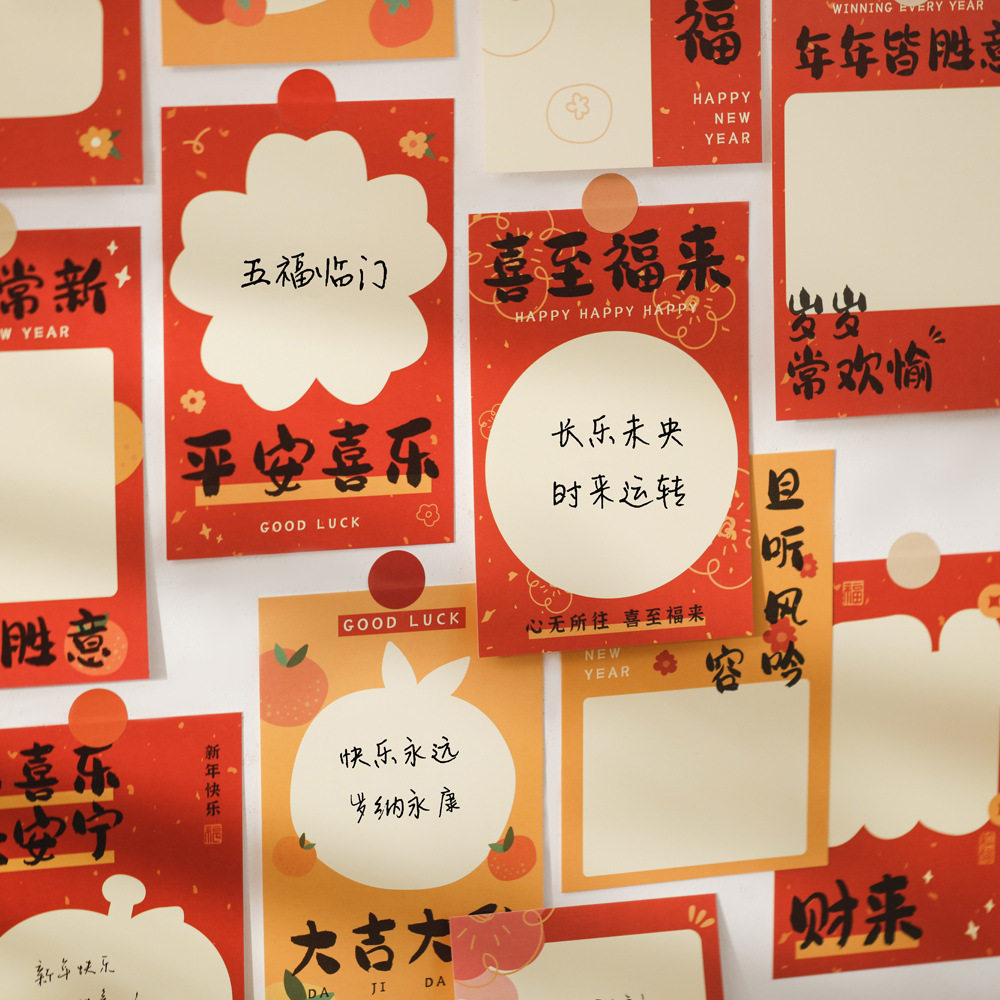 福
HAPPY
NEW
YEAR
WINNING EVERY YEAR
年年皆胜意
岁岁
常欢愉
五福临门
平安喜乐
GOOD LUCK
喜至福来
HAPPY HAPPY HAPPY
长乐未央
时来运转
心无所往 喜至福来
常新
YEAR
胜意
GOOD LUCK
快乐永远
岁纳永康
大吉大
DA JI DA
且听风吟
容
NEW
YEAR
福
财来
喜乐
安宁
新年快乐
福
新年快乐